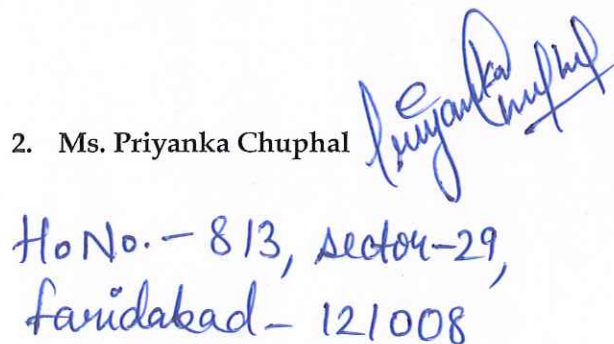 2. Ms. Priyanka Chuphal Priyanka Chuphal
Ho No. - 813, Sector-29,
Faridabad - 121008